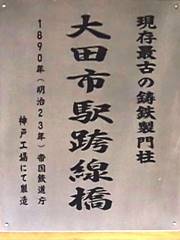 現存最古の鋳鉄製門柱
大田市駅跨線橋
1890年(明治23年)帝国鉄道庁
神戸工場にて製造